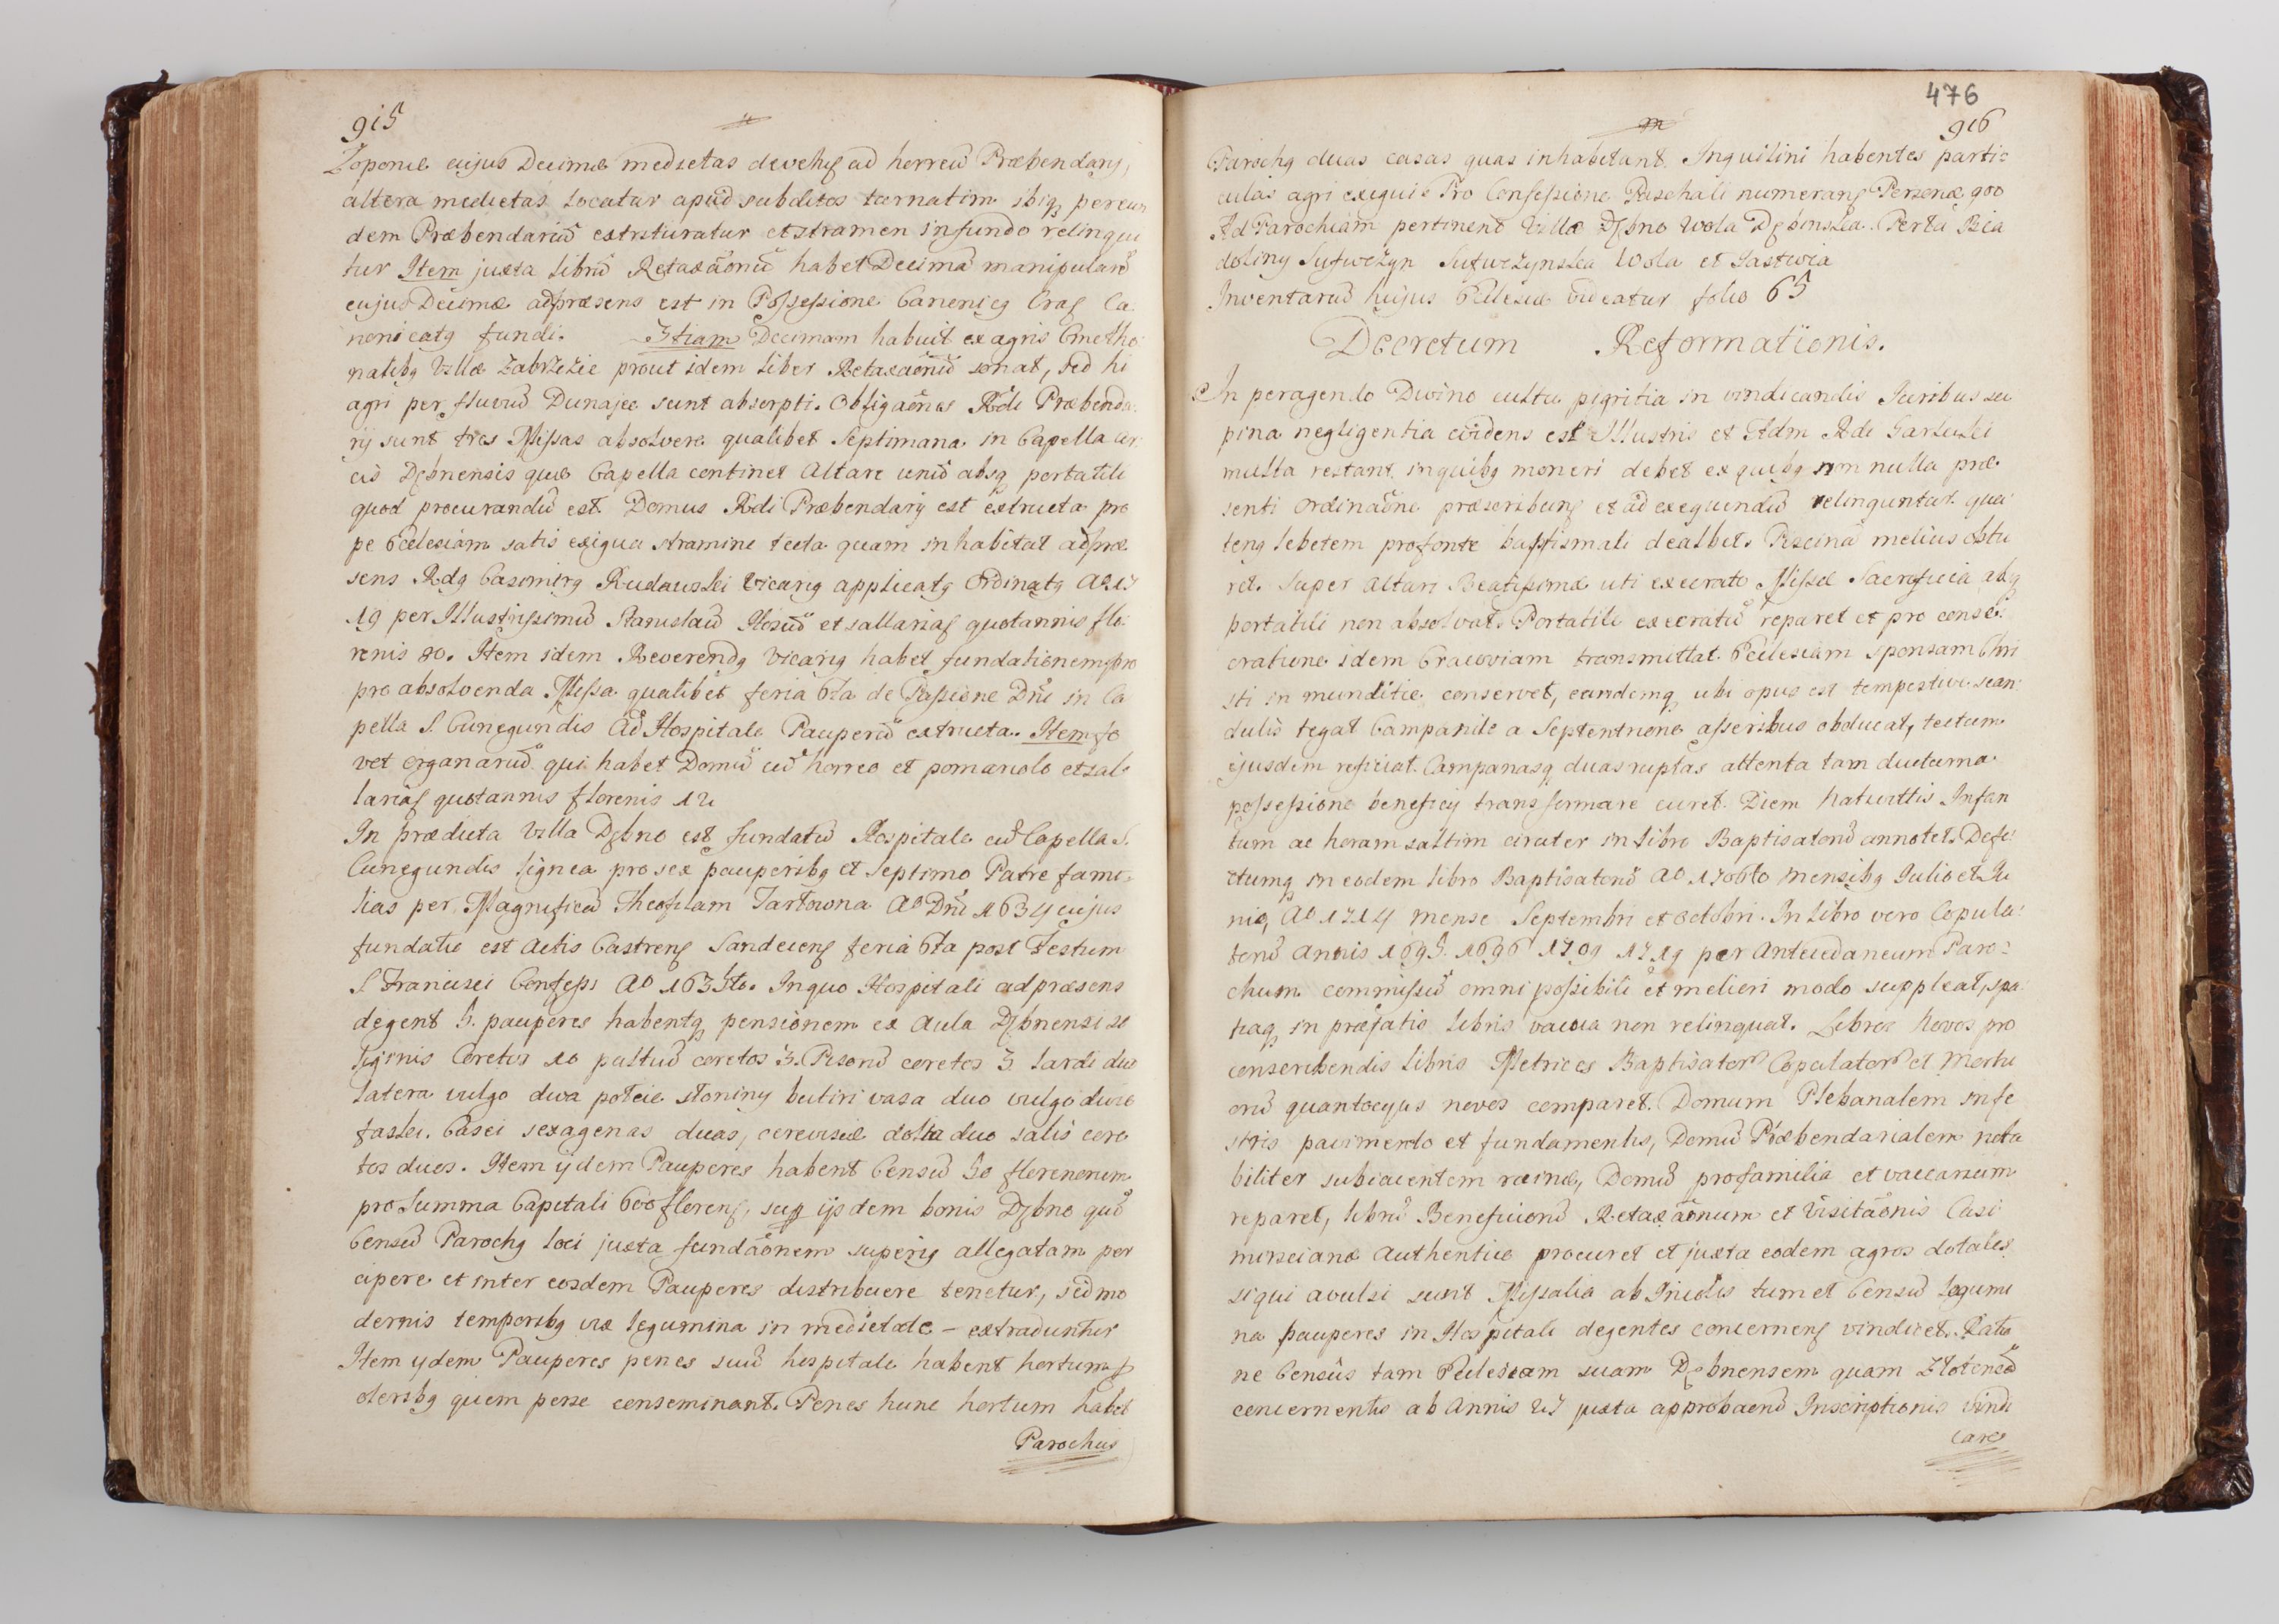 915
Zoponie cujus Decimæ medietas devehit ad horreū Præbendarÿ,
altera medietas locatur apud subditos ternatim ibiq; per eun
dem Præbendariū extrituratur et stramen in fundo relinqui
tur Item juxta librū Retaxaõnū habet Decimā manipularē
cujus Decimæ ad præsens est in Possessione Canonicq Crac Ca
nonicatq fundi. Etiam Decimam habuit ex agris Cmetho
nalibq Villæ Zabrzezie prout idem liber Retaxaõnū sonat, sed hi
agri per fluviū Dunajec sunt absorpti. Obligaõnes Rdi Præbenda
rÿ sunt tres Missas absolvere qualibet Septimana in Capella ar
cis Dębnensis quæ Capella continet Altare unū absq portatili
quod procurandū est. Domus Rdi Præbendarÿ est extructa pro
pe Ecclesiam satis exigua stramine tecta quam inhabitat ad præ
sens Rdq Casimirq Rudawski Vicariq applicatq Ordinatq Ao 17
19 per Illustrissimū Stanislaū Hosiū et sallariat quotannis flo
renis 80. Item idem Reverendq Vicariq habet fundationem pro
pro absolvenda Missa qualibet feria 6ta de Passione Dñi in Ca
pella S. Cunegundis ad Hospitale Pauperū extructa. Item fo
vet organariū qui habet Domū cū horreo et pomariolo et sal
lariat quotannis florenis 12
In prædicta Villa Dębno est fundatū Hospitale cū Capella S.
Cunegundis lignea pro sex pauperibq et septimo Patre fami
lias per Magnificā Theofilam Tarłowna Ao Dñi 1634 cujus
fundatio est Actis Castrens Sandecens feria 6ta post Festum
S Francisci Confess Ao 1635to. In quo Hospitali ad præsens
degent 5. pauperes habentq pensionem ex Aula Dębnensi si
liginis Coretos 10 paltuū coretos 3. Pisonū coretos 3 lardi duo
latera vulgo dwa połcie słoniny butiri vasa duo vulgo dwie
faski. Casei sexagenas duas, cerevisiæ dolia duo salis core
tos duos. Item ijdem Pauperes habent Censū 50 florenorum
pro Summa Capitali 600 florens, sup ijsdem bonis Dębno quē
Censū Parochq loci juxta fundaõnem superiq allegatam per
cipere et inter eosdem Pauperes distribuere tenetur, sed mo
dernis temporibq vix legumina in medietate – extraduntur
Item ijdem Pauperes penes suū hospitale habent hortum p
oleribq quem per se conseminant. Penes hunc hortum habet
Parochus
476
916
Parochq duas casas quas inhabitant Inquilini habentes parti=
culas agri exiguis Pro Confessione Paschali numerans Personæ 900
Ad Parochiam pertinent Villæ Dębno Wola Dębinska. Perła Bia
doliny Sufwczyn Sufwczynska Wola et Jastwia
Inventariū hujus Ecclesiæ videatur folio 65
Decretum Reformationis.
In peragendo Divino cultu pigritia in vindicandis Juribus su
pina negligentia evidens est Illustris et Adm Rdi Garlicki
multa restant in quibq moneri debet ex quibq non nulla præ
senti Ordinaõne præscribuns et ad exequendū relinquntur. qua
tenq lebetem pro fonte baptismali dealbet. Piscinā melius obtu
ret. Super altari Beatissimæ uti execrato Missæ Sacrificia absq
portatili non absolvat. Portatile execratū reparet et pro conse
cratione idem Cracoviam transmittat. Ecclesiam sponsam Chri
sti in munditie conservet, eandemq ubi opus est tempestive scan
dulis tegat Campanile a Septentrione asseribus obducat, tectum
ejusdem reficiat. Campanasq duas ruptas attenta tam diuturna
possessione beneficij transformare curet. Diem Nativitis Infan
tum ac horam saltim circiter in libro Baptisatorū annotet. Defe
ctumq in eodem libro Baptisatorū Ao 1706to mensibq Julio et Ju
nio, Ao 1714 mense Septembri et Octobri. In libro vero Copula
torū Annis 1695. 1696 1709 1719 per Antecedaneum Paro=
chum commissū omni possibili et meliori modo suppleat, spa
tiaq in præfatis libris vacua non relinquat. Libros Novos pro
conscribendis libris Metrices Baptisator Copulator et Mortu
orū quantocyus novos comparet. Domum Plebanalem in fe
stris pavimento et fundamentis, Domū Præbendarialem nota
biliter subiacentem ruinæ, Domū pro familia et vaccarium
reparet, librū Beneficiorū Retaxaõnum et Visitaõnis Casi
mirscianæ authentice procuret et juxta eodem agros dotales
si qui avulsi sunt Missalia ab Incolis tum et Censū legumi
na pauperes in Hospitali degentes concernens vindicet. Ratio
ne Census tam Ecclesiam suam Dębnensem quam Złotensē
concernentis ab Annis 27 juxta approbaend Inscriptionis vindi
care